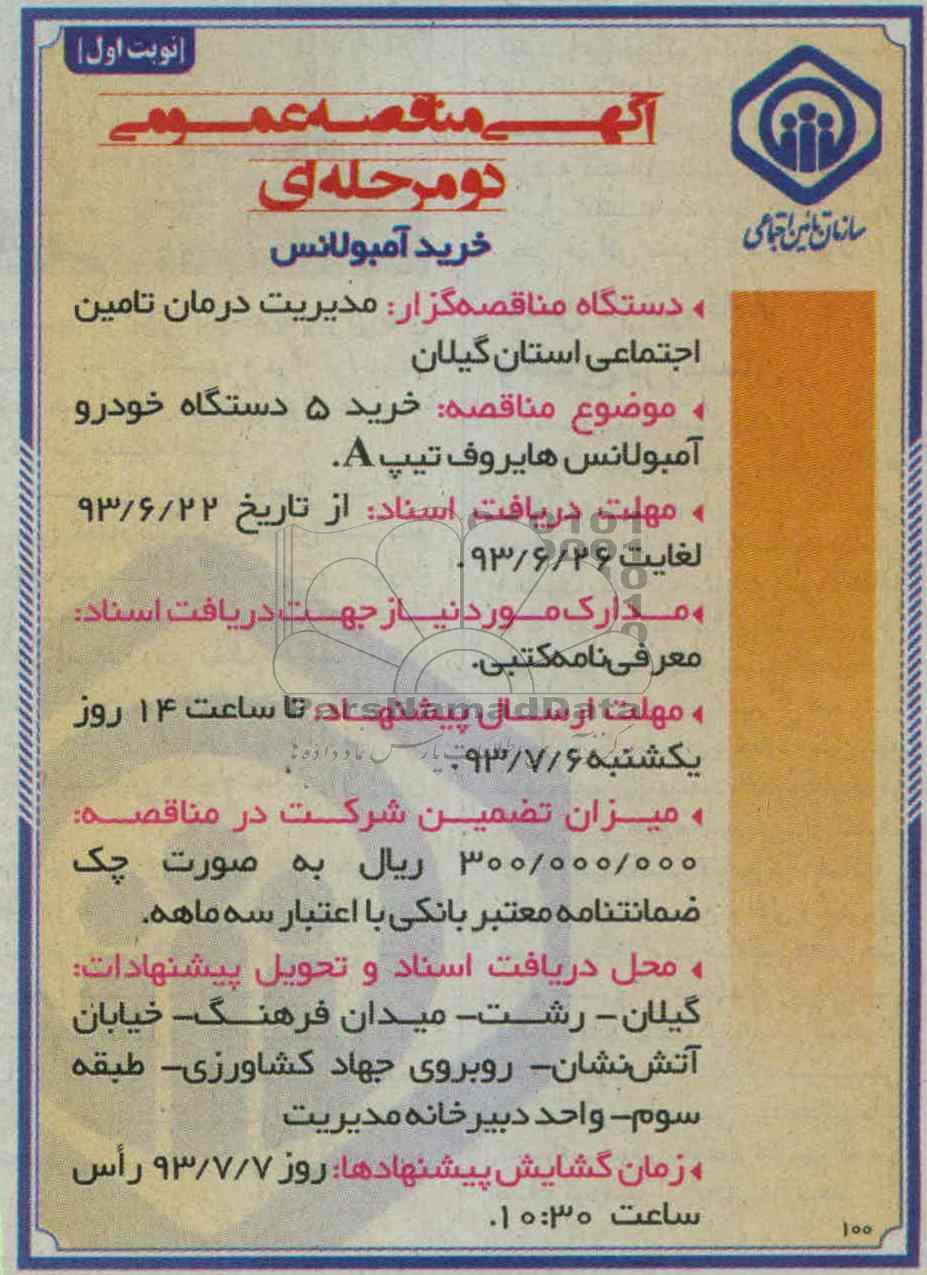 |نوبت اول|
آگهی مناقصه عمومی
دو مرحله‌ای
خرید آمبولانس
سازمان تأمین اجتماعی
دستگاه مناقصه‌گزار: مدیریت درمان تامین
اجتماعی استان گیلان
موضوع مناقصه: خرید ۵ دستگاه خودرو
آمبولانس هایروف تیپ A.
مهلت دریافت اسناد: از تاریخ ۹۳/۶/۲۲
لغایت ۹۳/۶/۲۶.
مدارک مورد نیاز جهت دریافت اسناد:
معرفی‌نامه کتبی.
مهلت ارسال پیشنهاد: تا ساعت ۱۴ روز
یکشنبه ۹۳/۷/۶.
ParsNamadData
میزان تضمین شرکت در مناقصه:
۳۰۰/۰۰۰/۰۰۰ ریال به صورت چک
ضمانتنامه معتبر بانکی با اعتبار سه ماهه.
محل دریافت اسناد و تحویل پیشنهادات:
گیلان – رشت – میدان فرهنگ – خیابان
آتش‌نشان – روبروی جهاد کشاورزی – طبقه
سوم – واحد دبیرخانه مدیریت
زمان گشایش پیشنهادها: روز ۹۳/۷/۷ رأس
ساعت ۱۰:۳۰.
۱۰۰